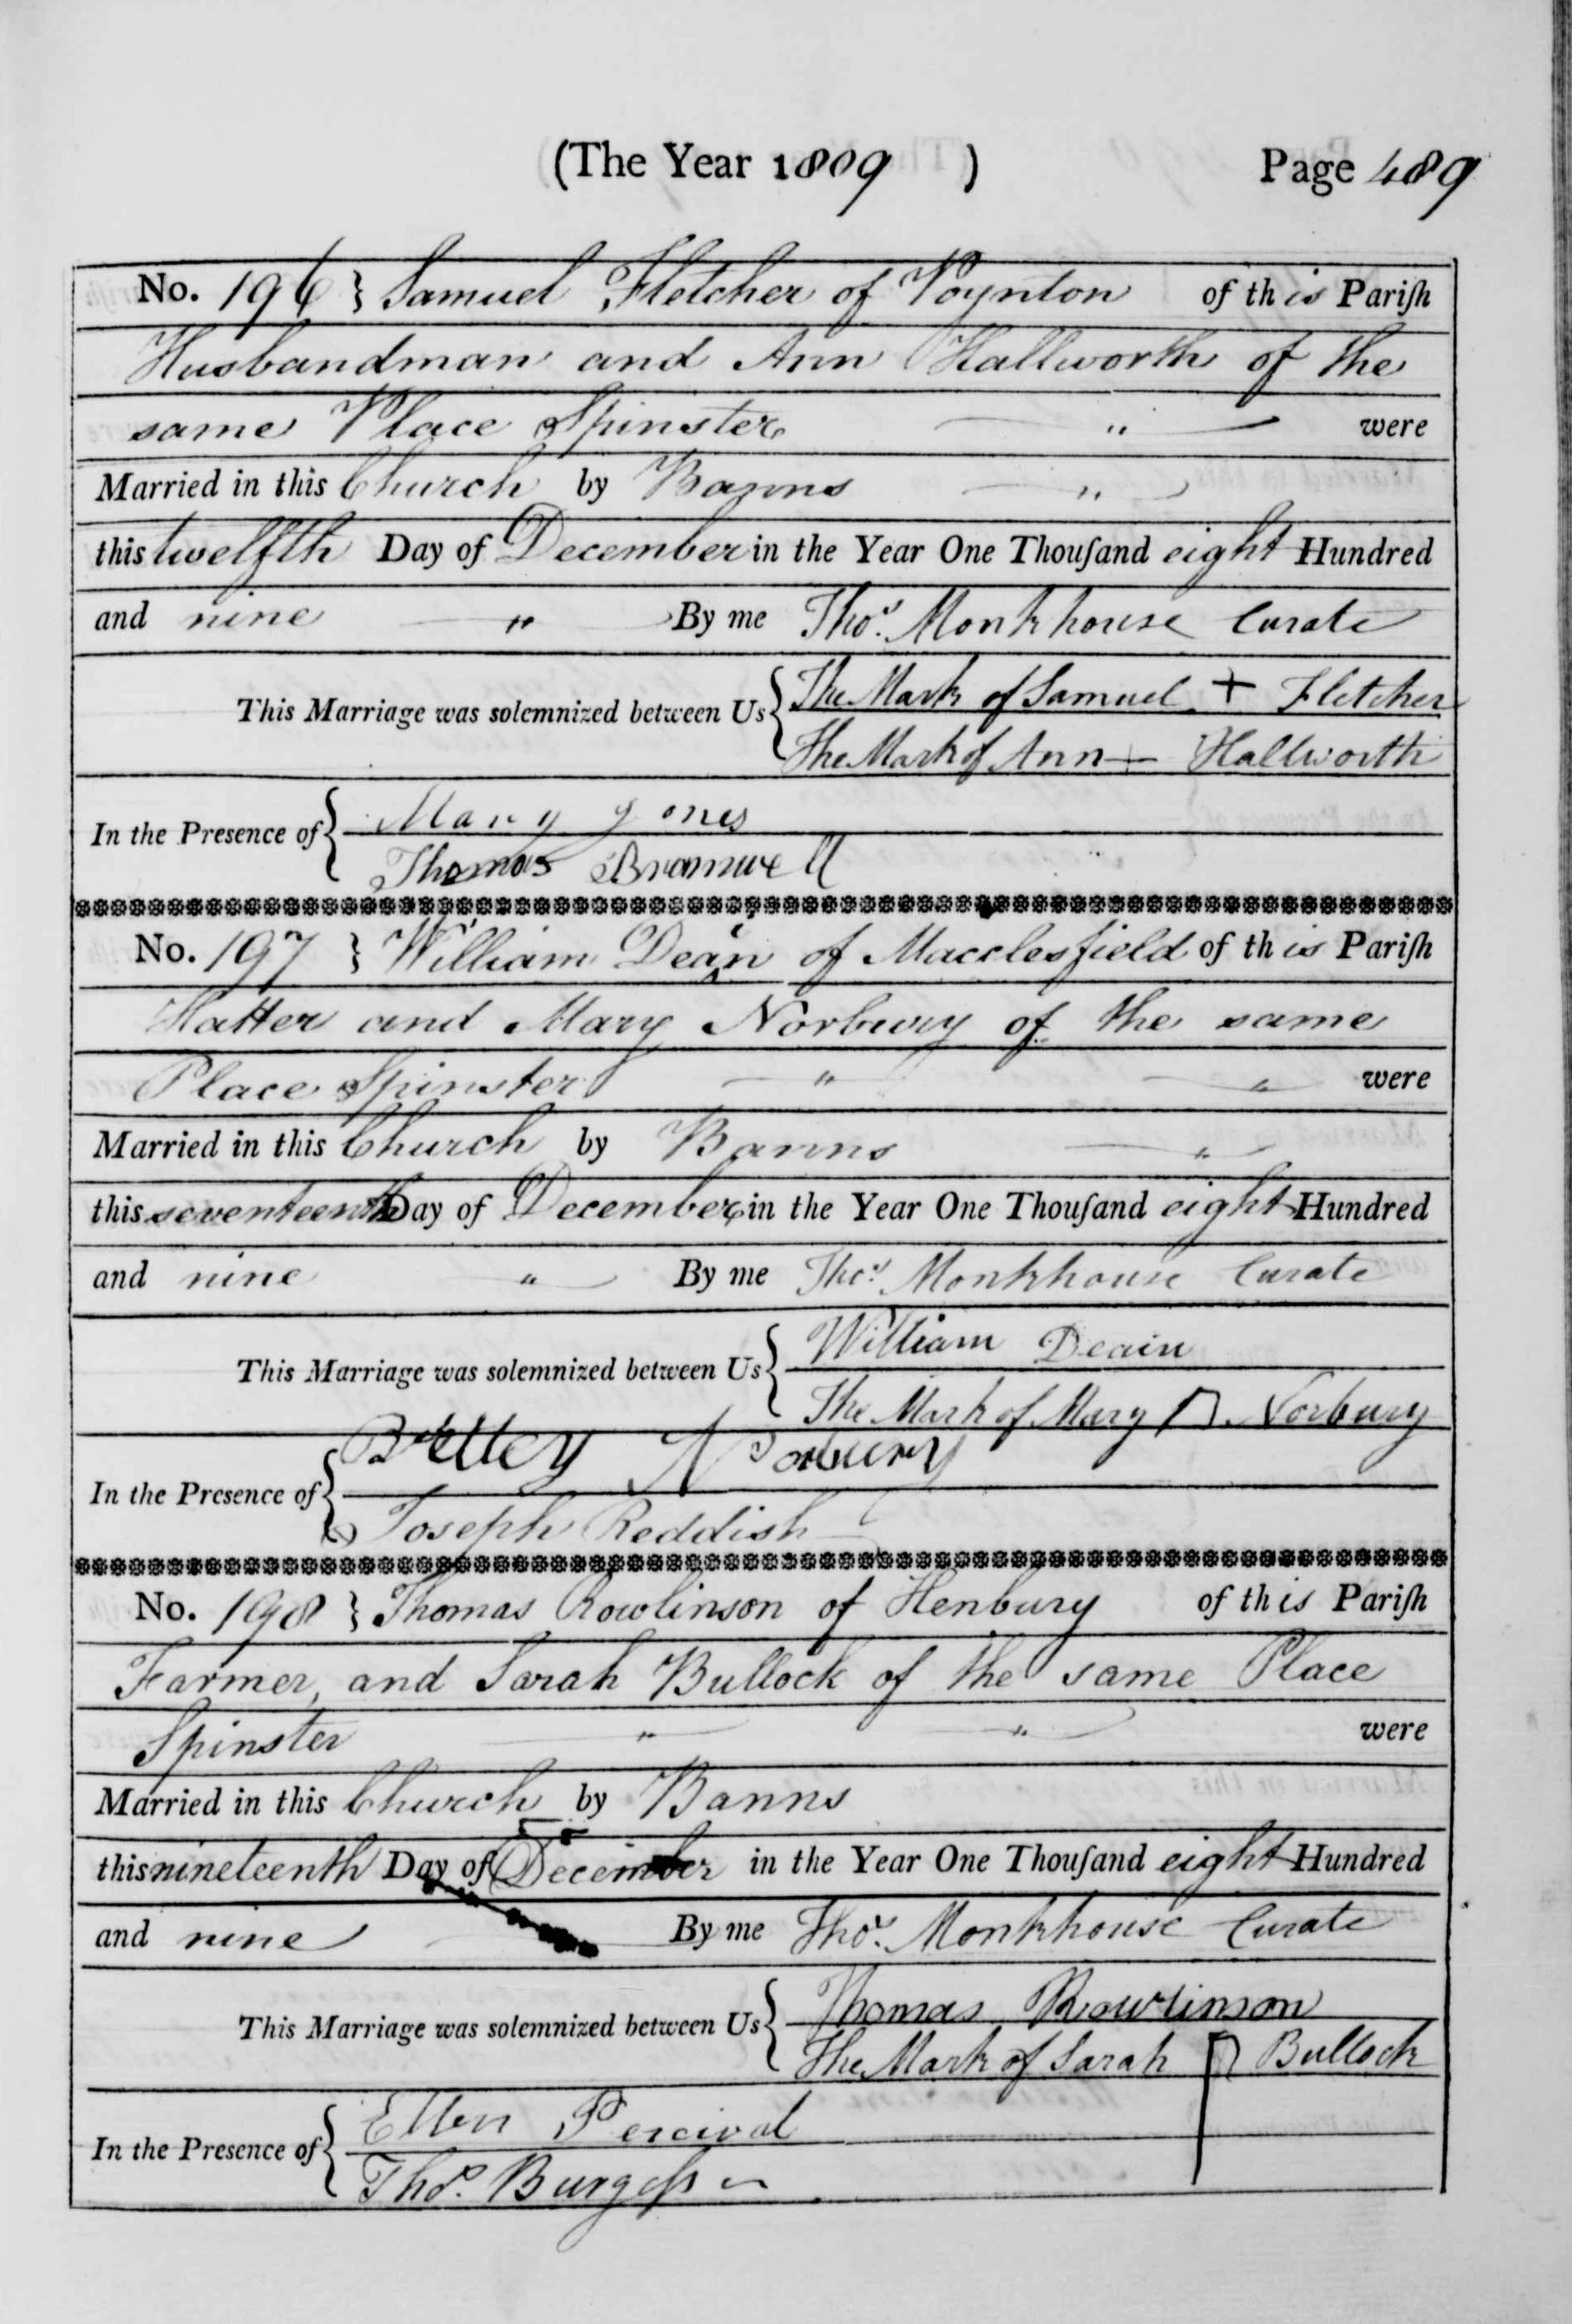 (The Year 1809 ) Page 489
No. 196 } Samuel Fletcher of Poynton of this Pariſh
Husbandman and Ann Hallworth of the
same Place Spinster " were
Married in this Church by Banns "
this twelfth Day of December in the Year One Thouſand eight Hundred
and nine " By me Thos. Monkhouse Curate
This Marriage was solemnized between Us { The Mark of Samuel + Fletcher
The Mark of Ann + Hallworth
In the Presence of { Mary Jones
Thomas Bramwell
No. 197 } William Deain of Macclesfield of this Pariſh
Hatter and Mary Norbury of the same
Place Spinster " " were
Married in this Church by Banns "
this seventeenth Day of December in the Year One Thouſand eight Hundred
and nine " By me Thos. Monkhouse Curate
This Marriage was solemnized between Us { William Deain
The Mark of Mary Norbury
In the Presence of { Bettey Norbury
Joseph Reddish
No. 198 } Thomas Rowlinson of Henbury of this Pariſh
Farmer, and Sarah Bullock of the same Place
Spinster " " were
Married in this Church by Banns
this nineteenth Day of December in the Year One Thouſand eight Hundred
and nine By me Thos. Monkhouse Curate
This Marriage was solemnized between Us { Thomas Rowlinson
The Mark of Sarah Bullock
In the Presence of { Ellen Percival
Thos. Burgeſs